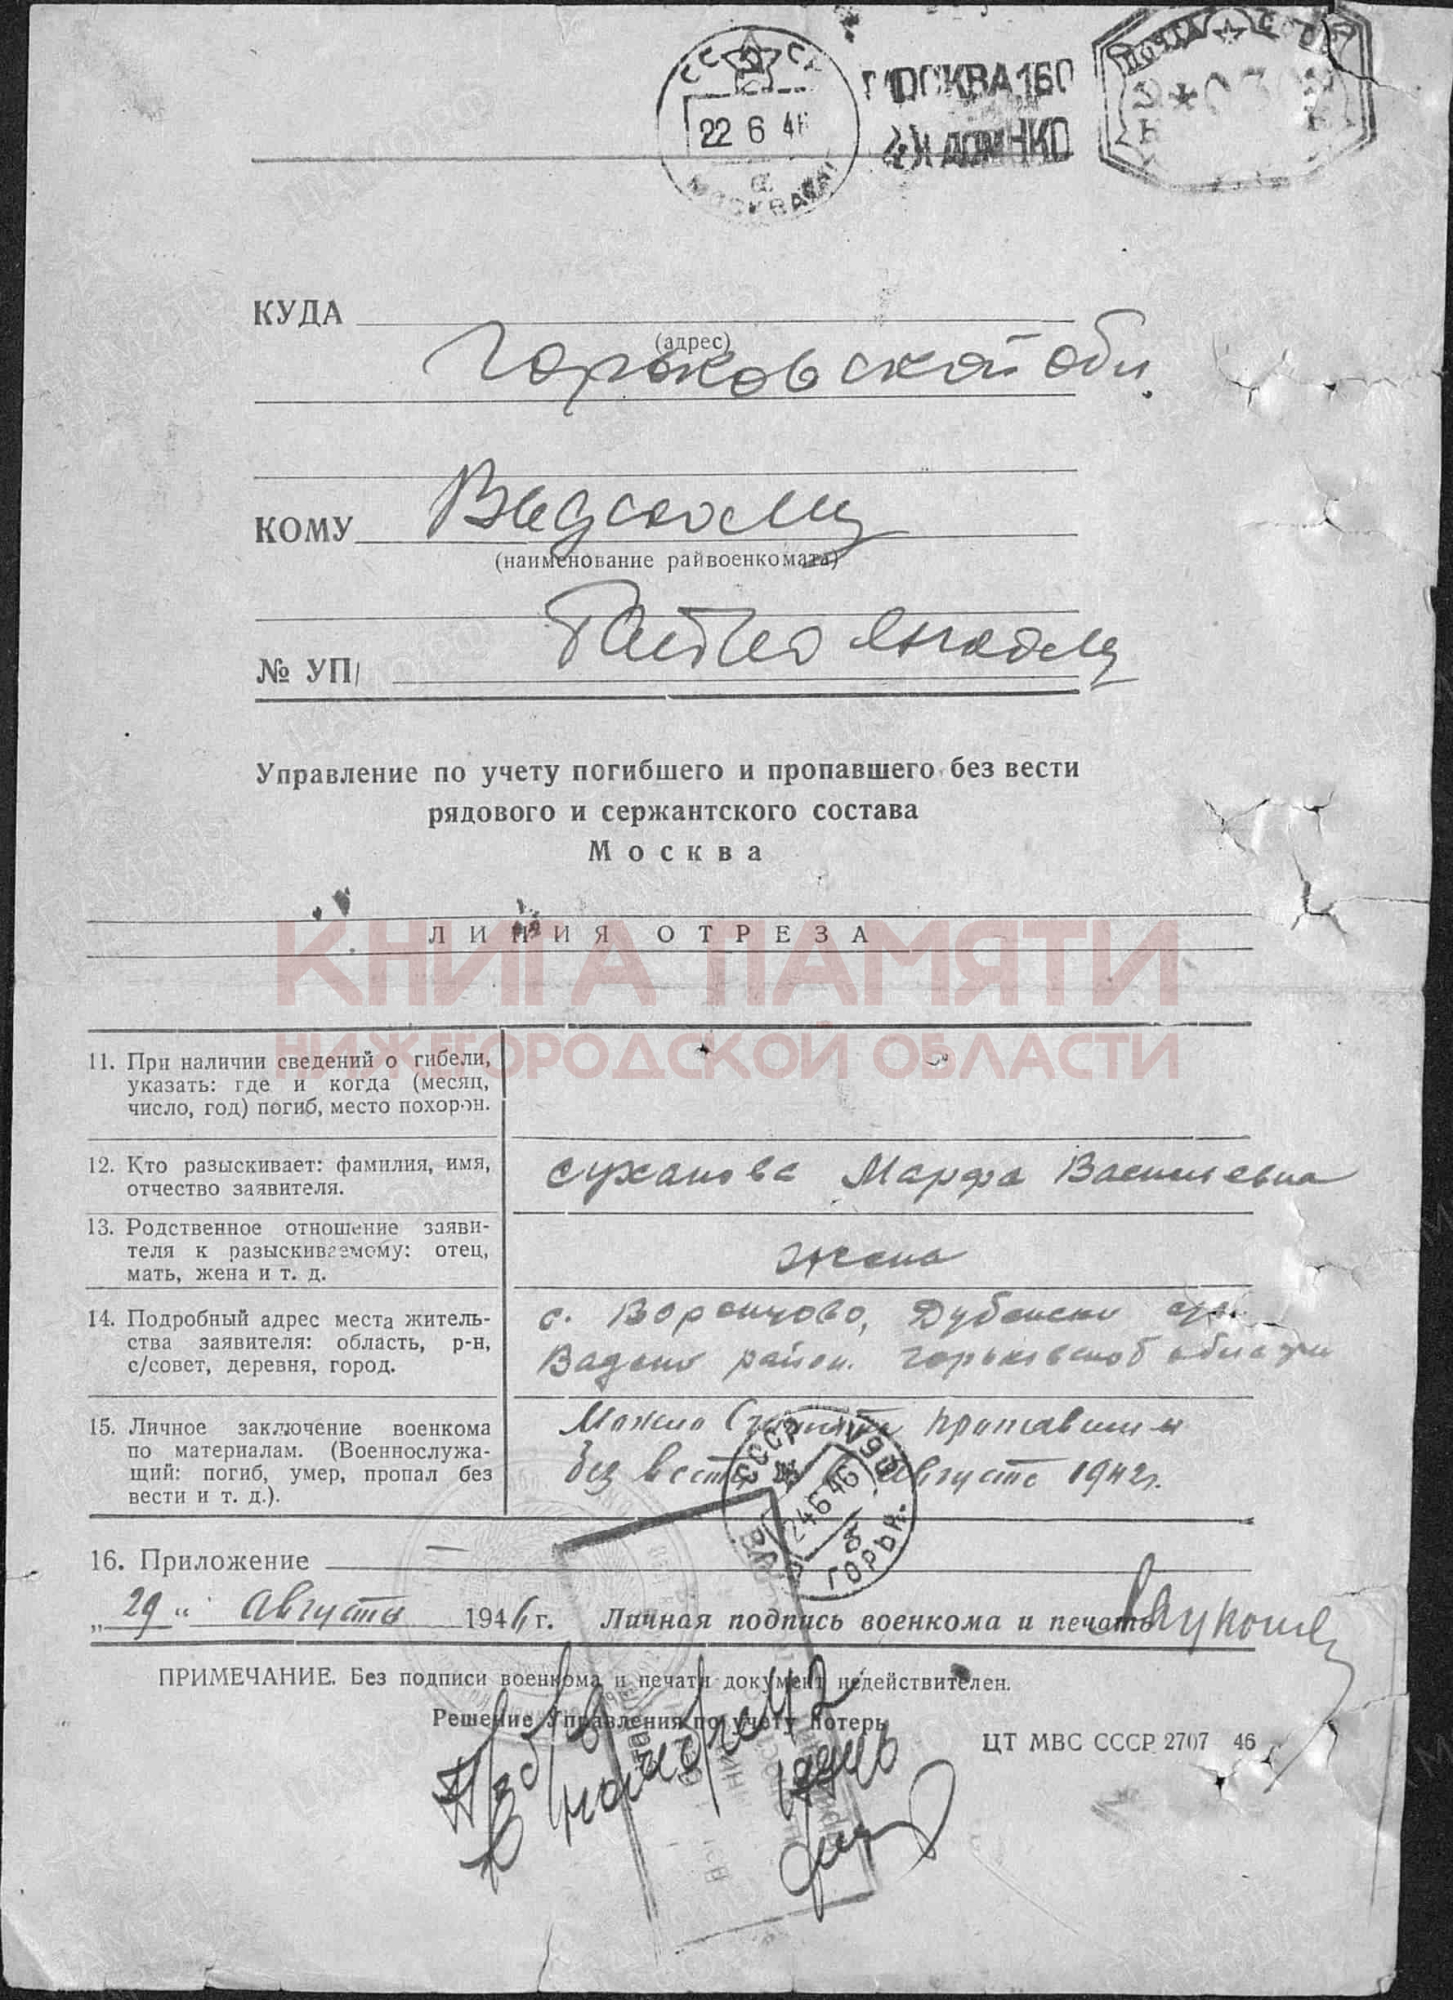 СССР
22 6 46
МОСКВА
МОСКВА 160
ПОЧТА СССР
КУДА
(адрес)
Горьковской обл.
КОМУ Вадскому
(наименование райвоенкомата)
Райвоенкому
№ УП/
Управление по учету погибшего и пропавшего без вести
рядового и сержантского состава
Москва
ЛИНИЯ ОТРЕЗА
КНИГА ПАМЯТИ
НИЖЕГОРОДСКОЙ ОБЛАСТИ
11. При наличии сведений о гибели,
указать: где и когда (месяц,
число, год) погиб, место похорон.
12. Кто разыскивает: фамилия, имя,
отчество заявителя.
Суханова Марфа Васильевна
13. Родственное отношение заяви-
теля к разыскиваемому: отец,
мать, жена и т. д.
жена
14. Подробный адрес места житель-
ства заявителя: область, р-н,
с/совет, деревня, город.
с. Дубенски
район. Горьковской области
15. Личное заключение военкома
по материалам. (Военнослужа-
щий: погиб, умер, пропал без
вести и т. д.).
Можно считать пропавшим
без вести в августе 1942г.
СССР
24 6 46
ГОРЬК.
16. Приложение —
„29" августа 1946 г. Личная подпись военкома и печать
ПРИМЕЧАНИЕ. Без подписи военкома и печати документ недействителен.
Решение Управления по учету потерь
ЦТ МВС СССР 2707 46